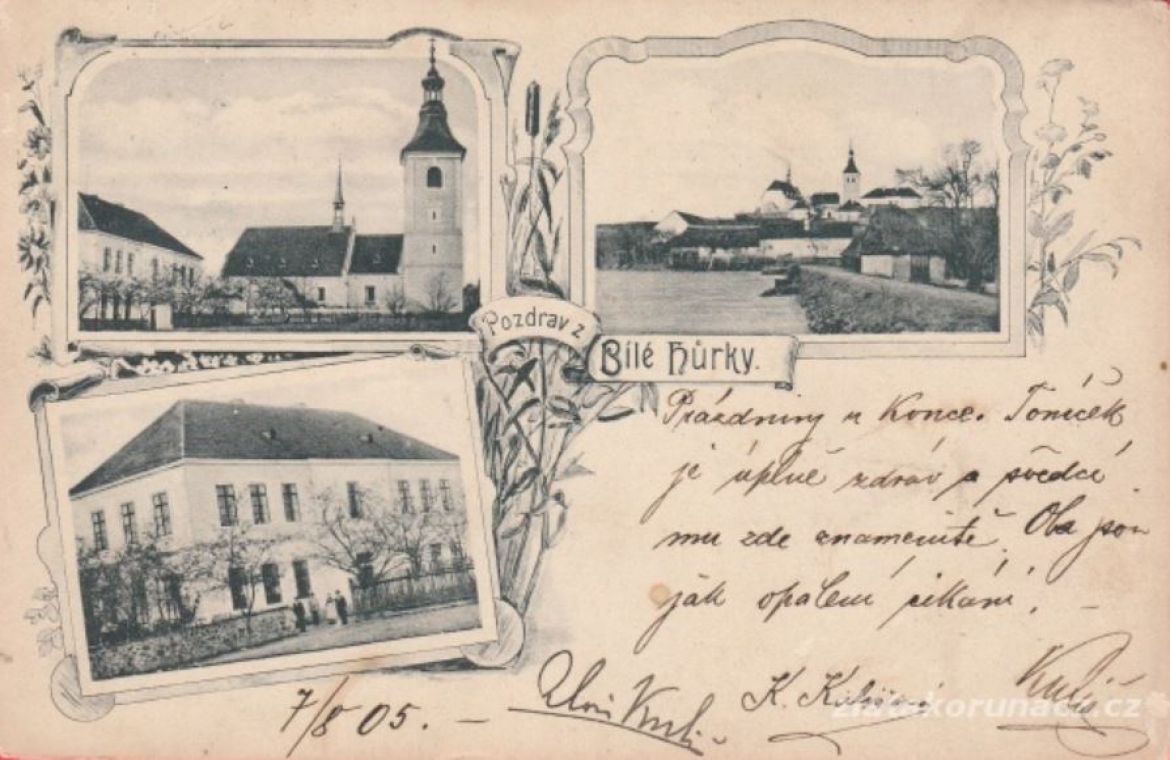 Pozdrav z
Bílé Hůrky.
Prázdniny u konce. Toníček
je úplně zdráv a svědčí
mu zde znamenitě. Oba jsou
jak opálení cikáni. –
7/8 05. –
K.
zlatakorunacz.cz